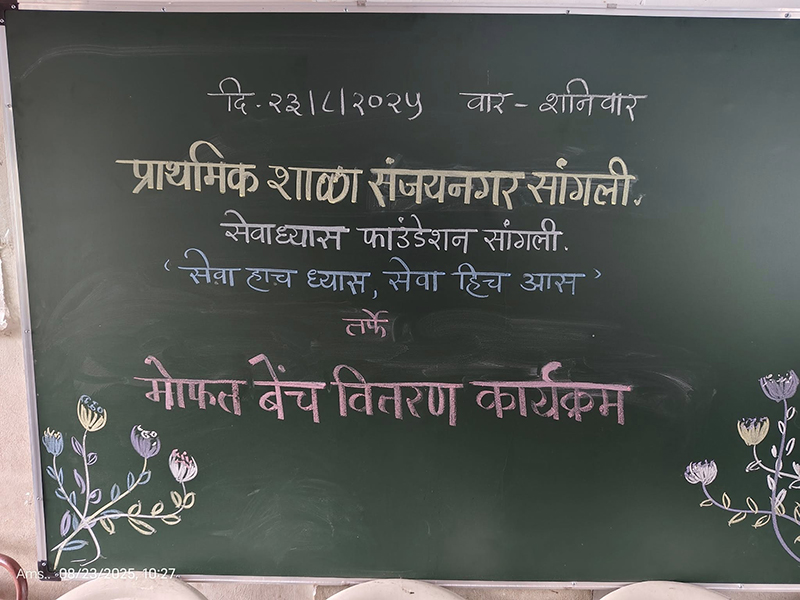 दि. २३/८/२०२५ वार - शनिवार
प्राथमिक शाळा संजयनगर सांगली.
सेवाध्यास फाउंडेशन सांगली.
‘ सेवा हाच ध्यास, सेवा हिच आस ’
तर्फे
मोफत बेंच वितरण कार्यक्रम
Ams.. 08/23/2025, 10:27